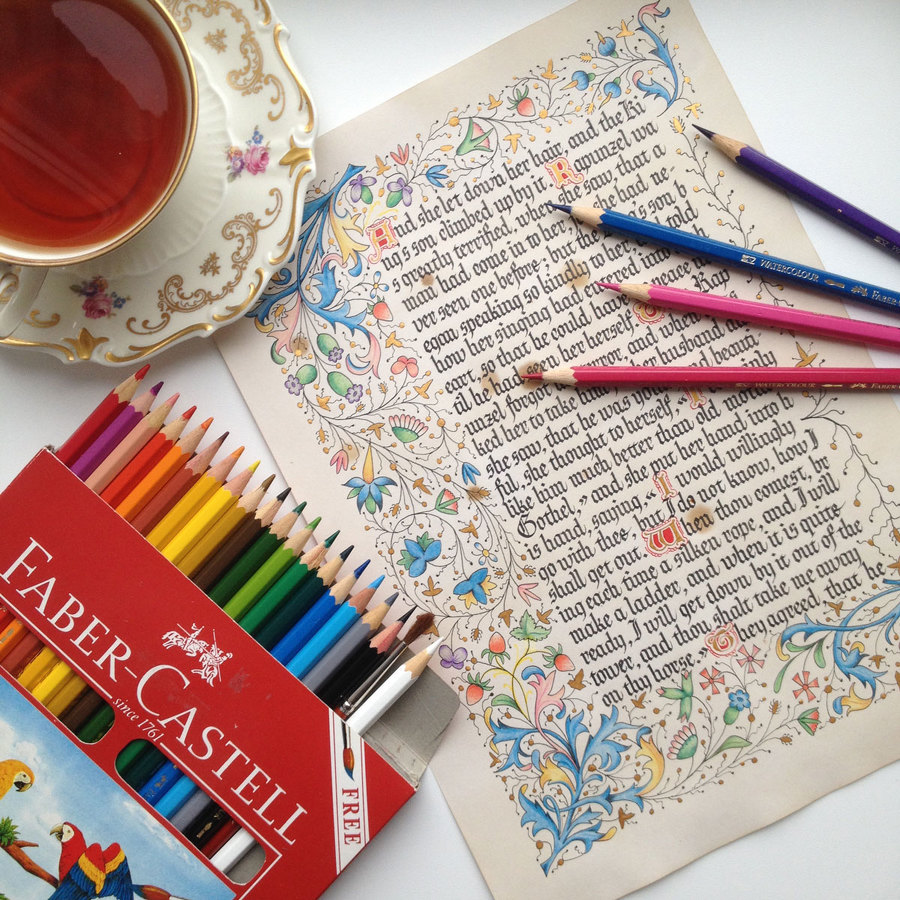 And she let down her hair, and the Ki
ng's son climbed up by it. Rapunzel wa
s greatly terrified, when she saw that a
man had come in to her, for she had ne
ver seen one before; but the son b
egan speaking so kindly to her, told
how her singing had entered into h
eart, so that he could have peace
til he had seen her herself. Rap
unzel forgot her terror, and when
ked her to take him her husband, and
she saw that he was young and beauti
ful, she thought to herself, "I
like him much better than old mother
Gothel," and she put her hand into h
is hand, saying, "I would willingly
go with thee, but I do not know, how I
shall get out. When thou comest, br
ing each time a silken rope, and I will
make a ladder, and when it is quite
ready, I will get down by it out of the
tower, and thou shalt take me away
on thy horse." They agreed that he
WATERCOLOUR FABER
WATERCOLOUR FABER
FABER-CASTELL
since 1761
FREE